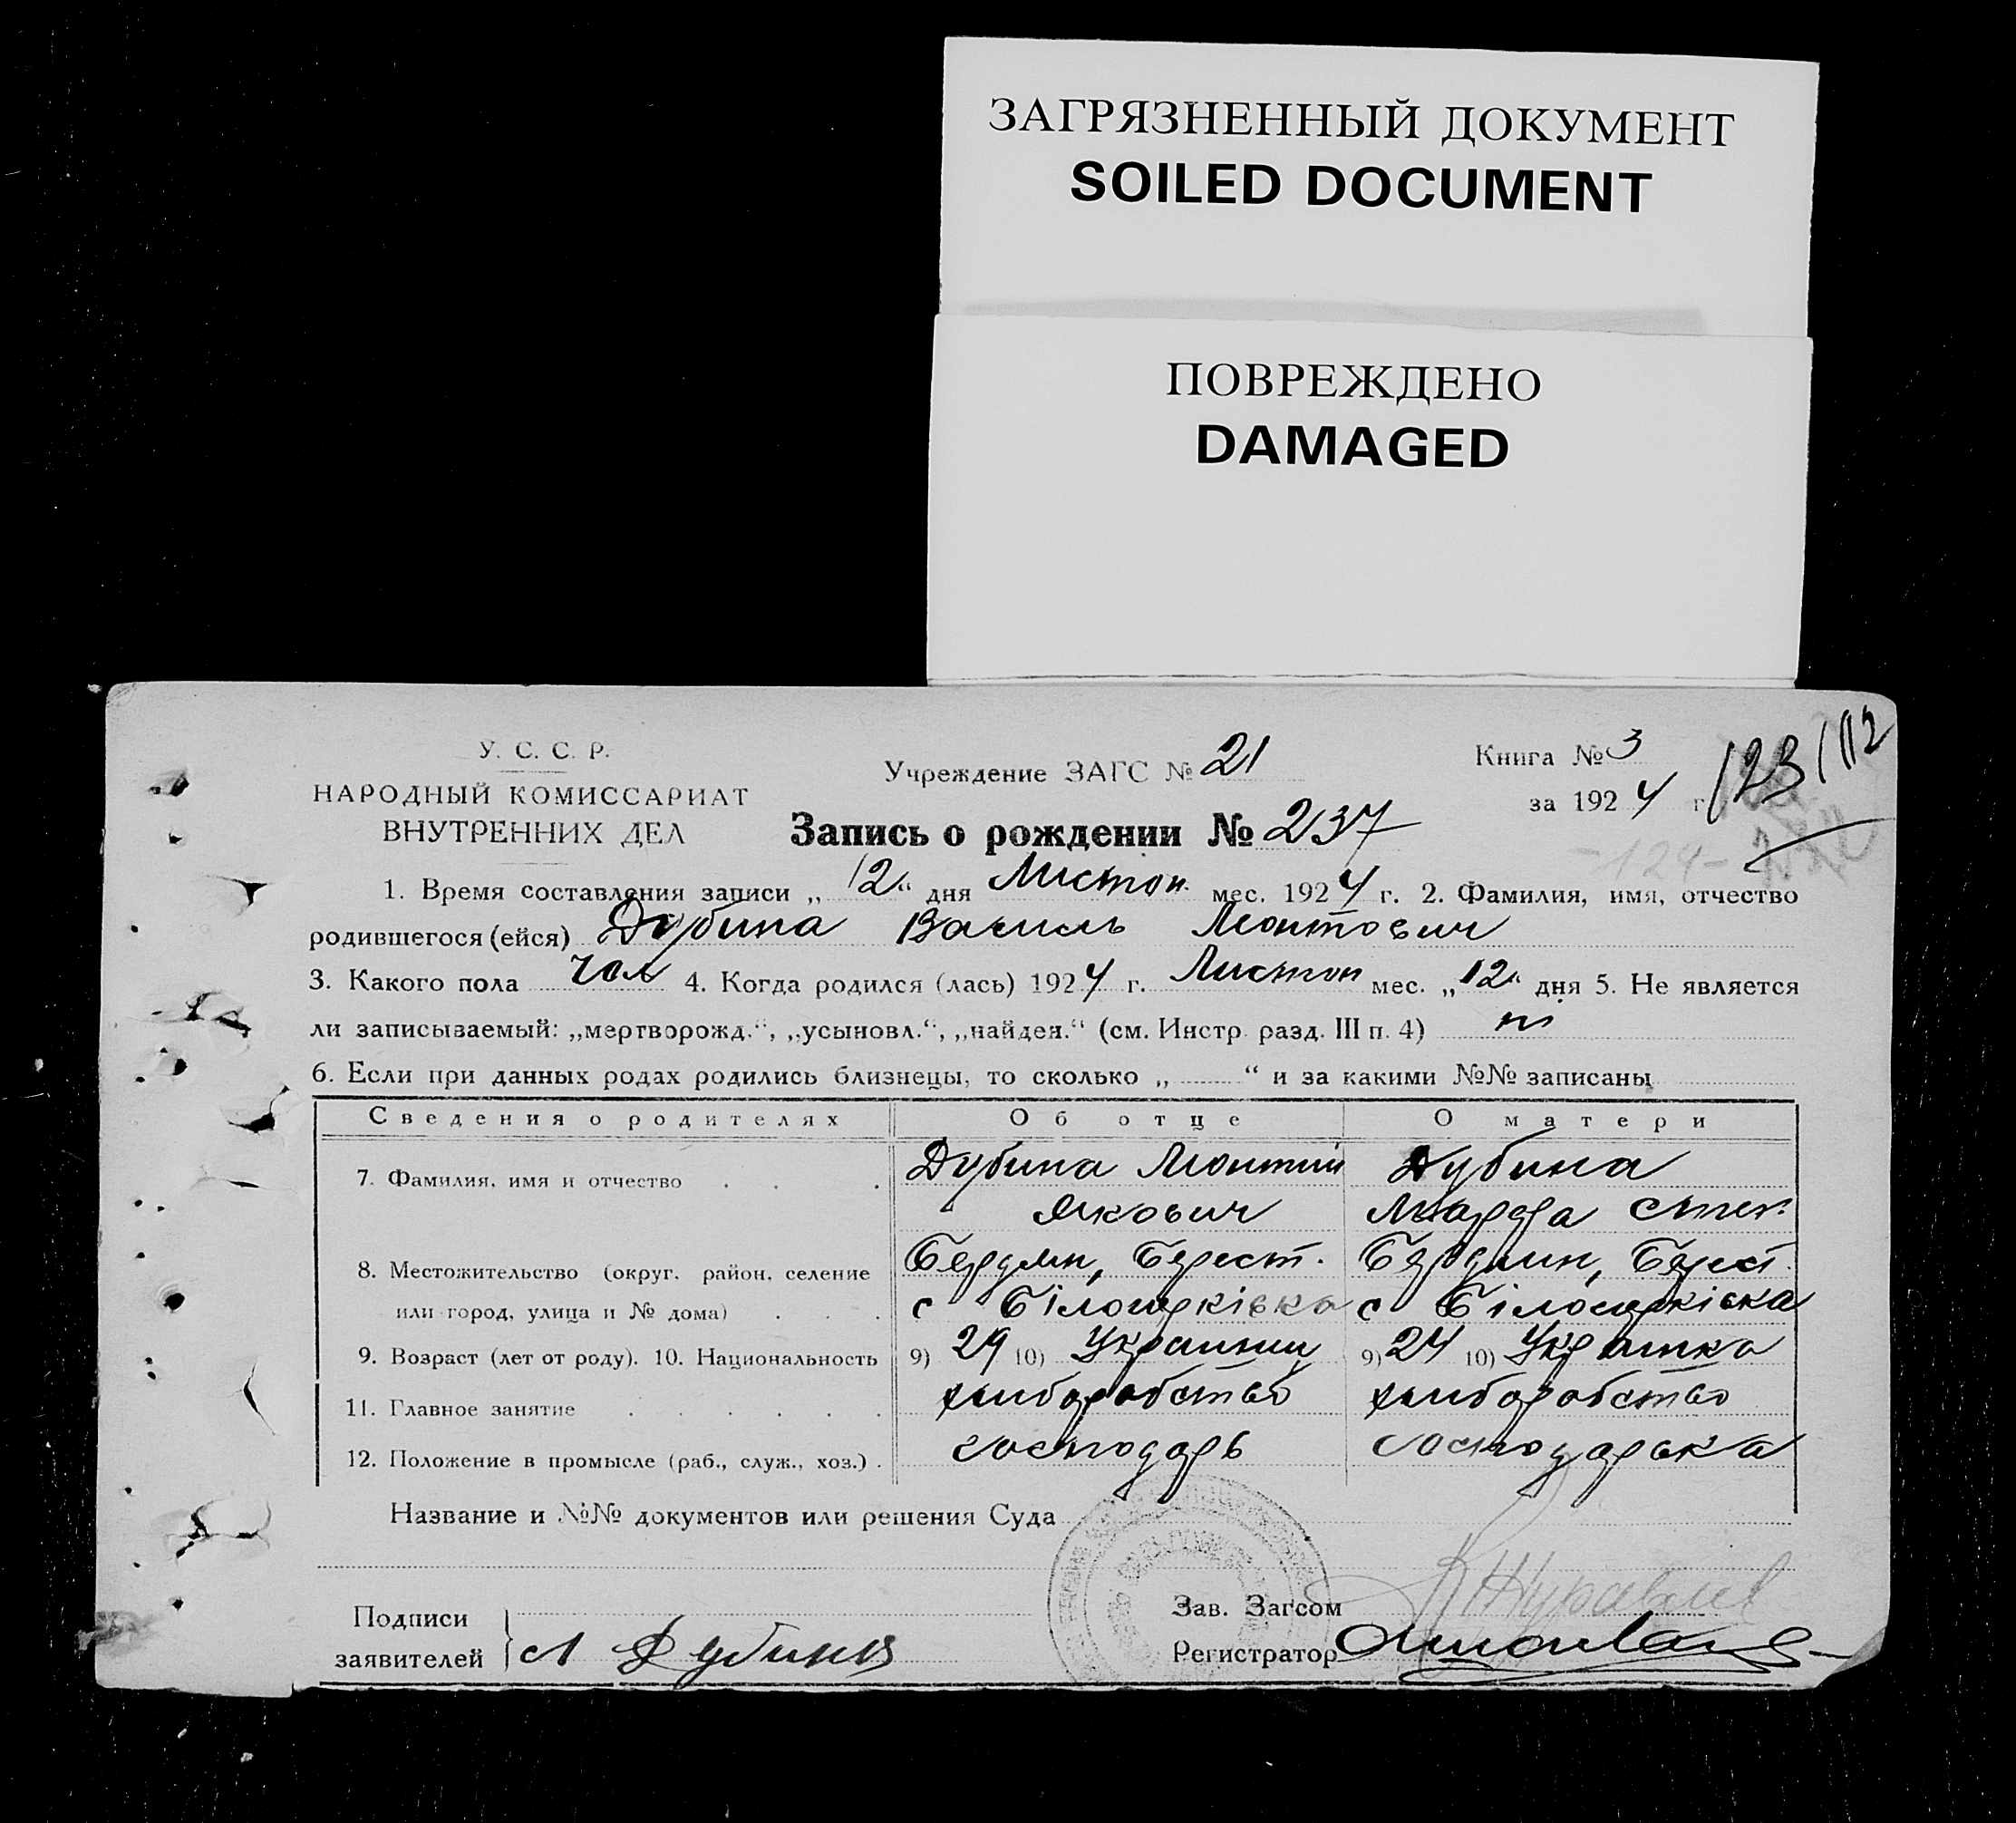 ЗАГРЯЗНЕННЫЙ ДОКУМЕНТ
SOILED DOCUMENT
ПОВРЕЖДЕНО
DAMAGED
У. С. С. Р.
НАРОДНЫЙ КОМИССАРИАТ
ВНУТРЕННИХ ДЕЛ
Учреждение ЗАГС № 21
Книга № 3
за 1924 г.
123/112
Запись о рождении № 237
-124-
1. Время составления записи „12“ дня Листоп. мес. 1924 г. 2. Фамилия, имя, отчество
родившегося (ейся) Дубина Василь Леонтович
3. Какого пола чол 4. Когда родился (лась) 1924 г. Листоп мес. „12“ дня 5. Не является
ли записываемый: „мертворожд.“, „усыновл.“, „найден.“ (см. Инстр. разд. III п. 4) ні
6. Если при данных родах родились близнецы, то сколько „ “ и за какими №№ записаны
Сведения о родителях Об отце О матери
7. Фамилия, имя и отчество Дубина Леонтий Дубина
Якович Марфа Степ.
8. Местожительство (округ, район, селение Бердян, Берест. Бердян, Берест.
или город, улица и № дома) с Білоцерківка с Білоцерківка
9. Возраст (лет от роду). 10. Национальность 9) 29 10) Украинец 9) 24 10) Украинка
11. Главное занятие хлиборобство хлиборобство
12. Положение в промысле (раб., служ., хоз.) господарь господарька
Название и №№ документов или решения Суда
Подписи
заявителей Л Дубина
Зав. Загсом Журавлев
Регистратор